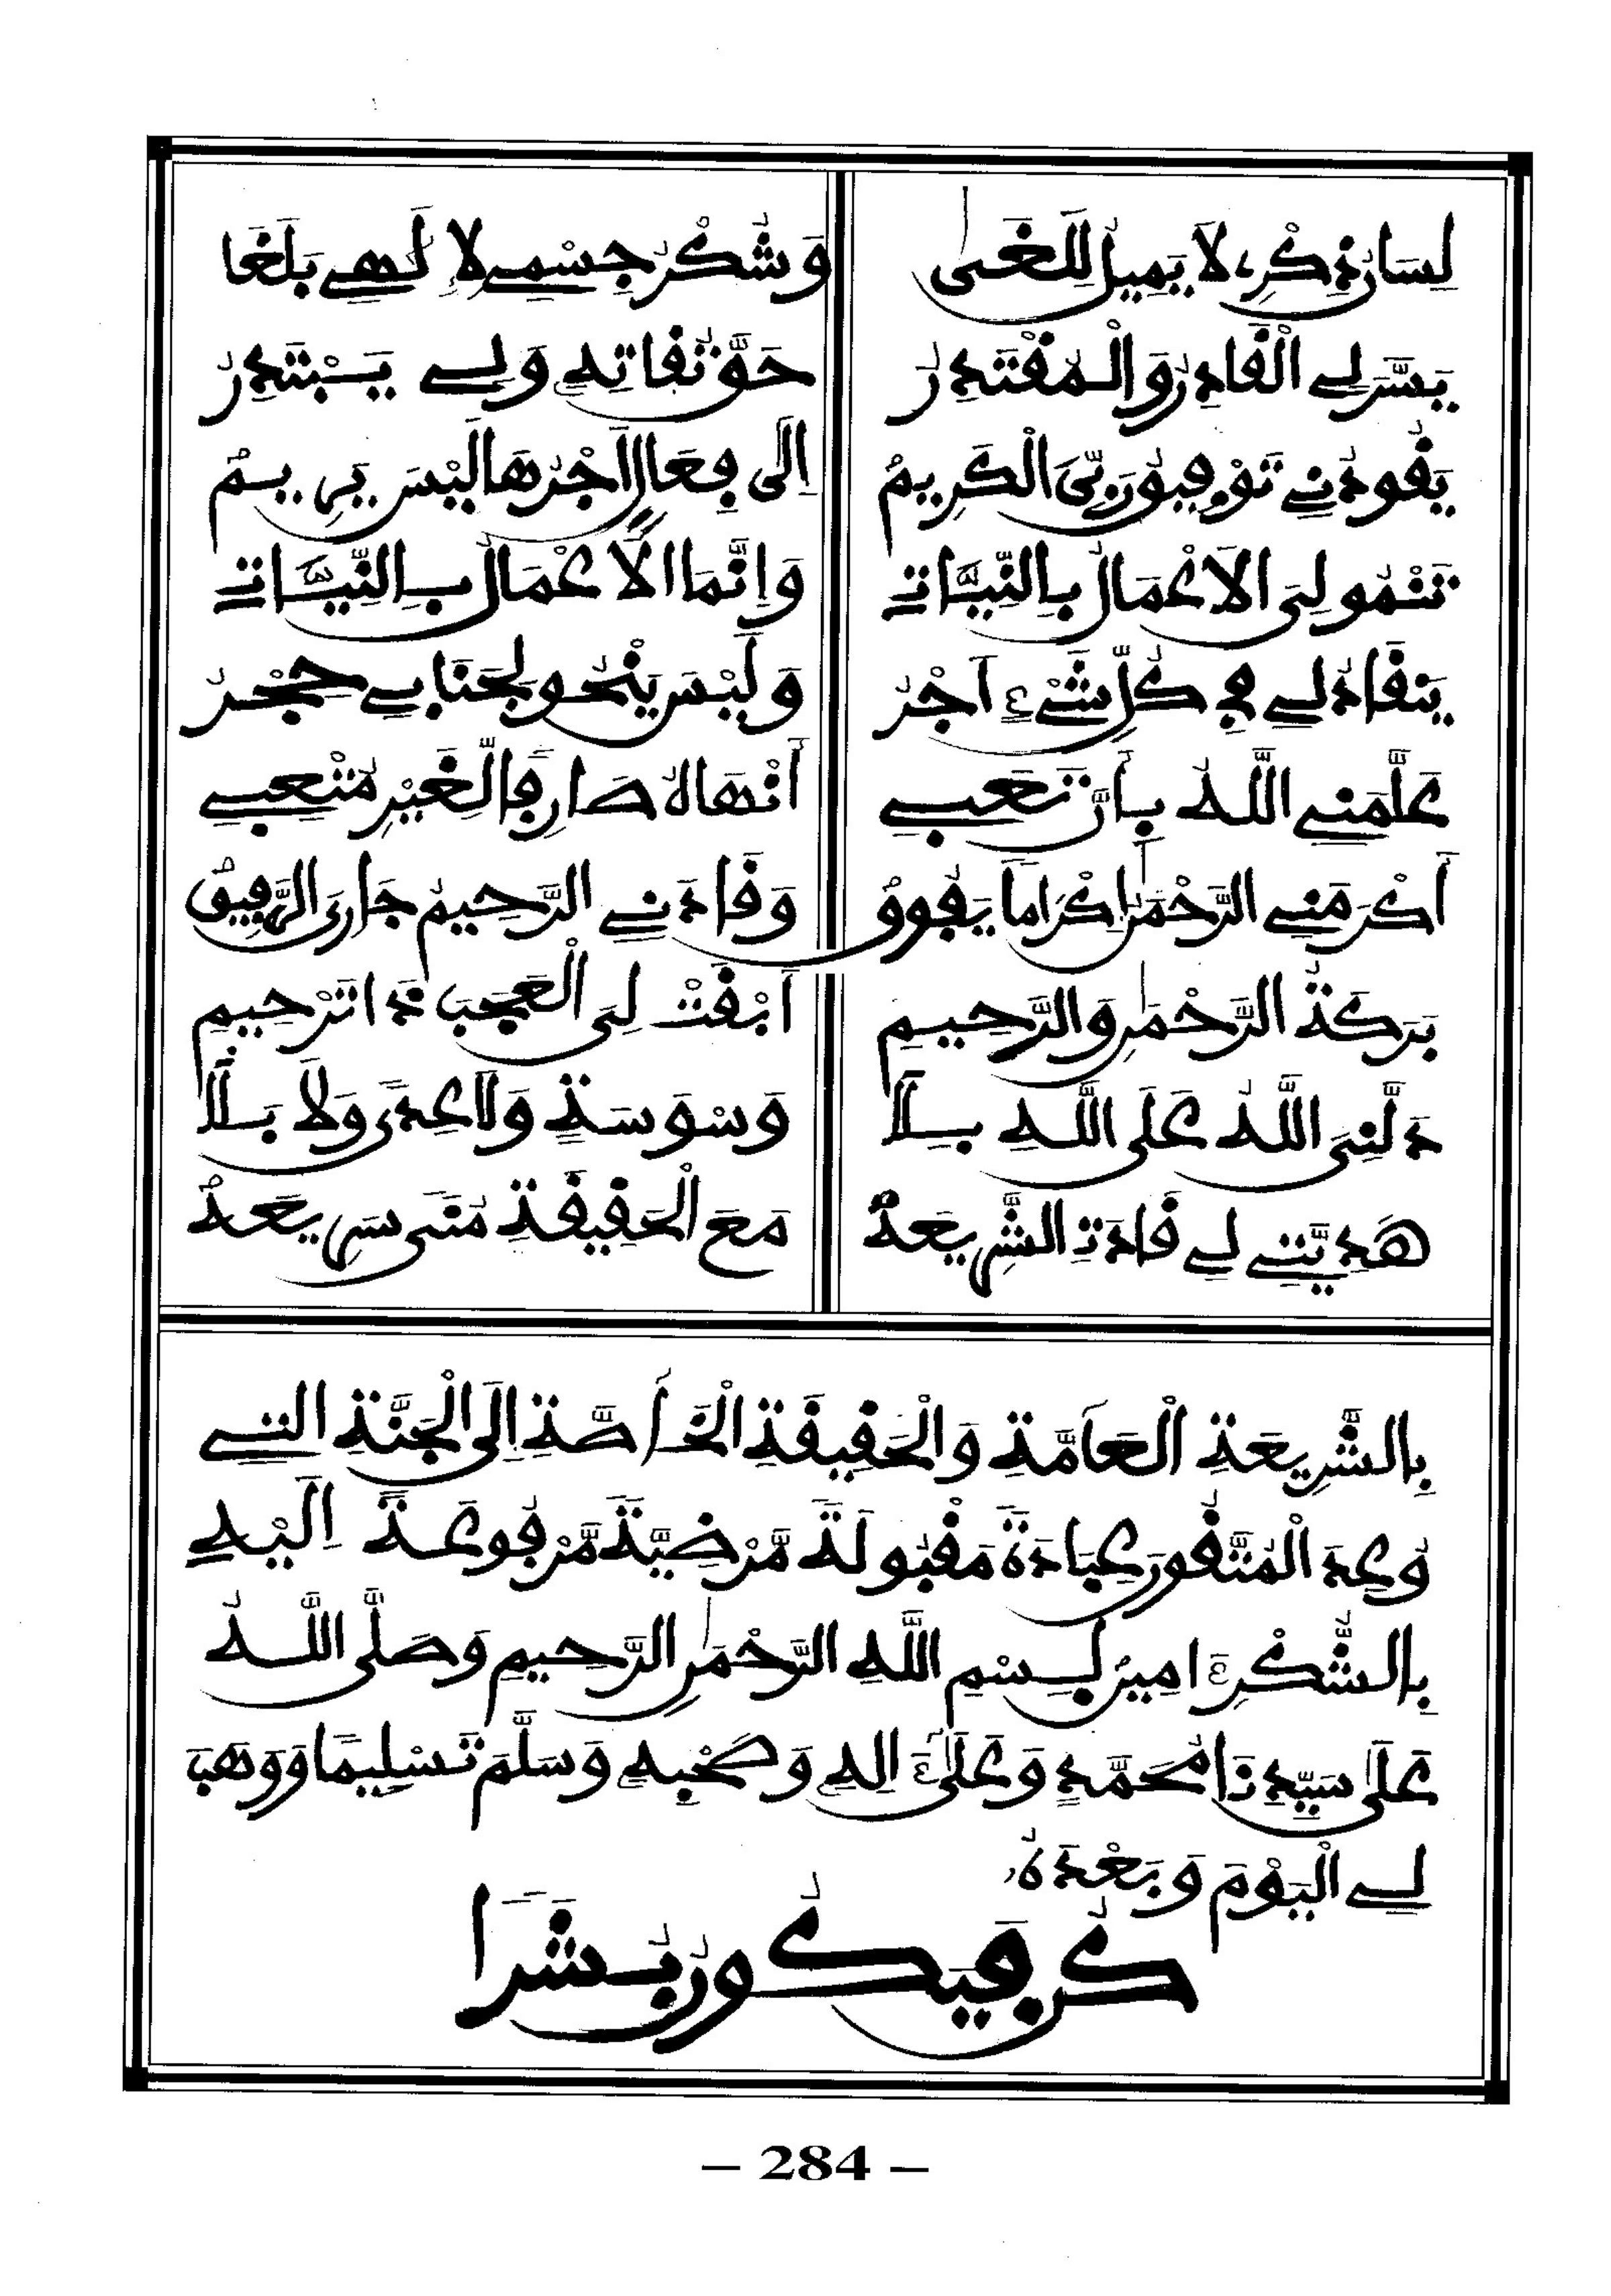 لِسَانُ ذِكْرِي لَا يَمِيلُ لِلَّغَى وَشُكْرُ جِسْمِي لِإِلَهِي بَلَغَا
يَسَّرَ لِي الْقَادِرُ وَالْمُقْتَدِرُ حَقَّ تُقَاتِهِ وَلِي يَبْتَدِرُ
يَقُودُنِي تَوْفِيقُ رَبِّيَ الْكَرِيمْ إِلَى فِعَالٍ أَجْرُهَا لَيْسَ يَرِيمْ
تَنْمُو لِيَ الْأَعْمَالُ بِالنِّيَّاتِ وَإِنَّمَا الْأَعْمَالُ بِالنِّيَّاتِ
يَنْقَادُ لِي فِي كُلِّ شَيْءٍ أَجْرُ وَلَيْسَ يَنْحُو لِجَنَابِي حَجْرُ
عَلَّمَنِي اللَّهُ بِأَنَّ تَعَبِي أَنْهَاهُ صَارِفًا لِغَيْرِ مُتْعِبِي
أَكْرَمَنِي الرَّحْمَٰنُ إِكْرَامًا يَفُوقْ وَقَادَنِي الرَّحِيمُ جَارِيَ الرَّفِيقْ
بَرَكَةُ الرَّحْمَٰنِ وَالرَّحِيمِ أَبْقَتْ لِيَ الْعَجَبَ ذَا تَرْحِيمِ
دَلَّنِيَ اللَّهُ عَلَى اللَّهِ بِلَا وَسْوَسَةٍ وَلَا عِدًى وَلَا بَلَا
هَدِيَّتِي لِي قَادَتِ الشَّرِيعَهْ مَعَ الْحَقِيقَةِ مُنًى سَرِيعَهْ
بِالشَّرِيعَةِ الْعَامَّةِ وَالْحَقِيقَةِ الْخَاصَّةِ إِلَى الْجَنَّةِ الَّتِي
وُعِدَ الْمُتَّقُونَ عِبَادَةً مَقْبُولَةً مَّرْضِيَّةً مَّرْفُوعَةً إِلَيْهِ
بِالشُّكْرِ ءَامِينَ بِسْمِ اللَّهِ الرَّحْمَٰنِ الرَّحِيمِ وَصَلَّى اللَّهُ
عَلَى سَيِّدِنَا مُحَمَّدٍ وَعَلَى ءَالِهِ وَصَحْبِهِ وَسَلَّمَ تَسْلِيمًا وَوَهَبَ
لِي الْيَوْمَ وَبَعْدَهُ
كُن فَيَكُونُ بُشْرًا
– 284 –